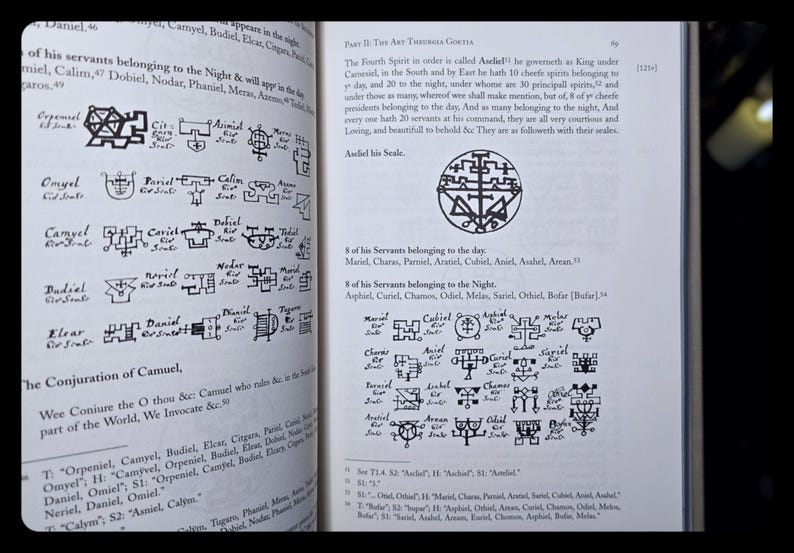 Daniel.46
Camyel, Budiel, Elcar, Citgara, Pariel,
appeare in the night.
of his servants belonging to the Night & will appr in the day.
miel, Calim,47 Dobiel, Nodar, Phaniel, Meras, Azemo,48
garos.49
Orpemiel his Seale.
Citgara. his Seale.
Asimiel his Seale.
Meras
Omyel his Seale.
Pariel his Seale.
Calim his Seale.
Azemo
Camyel his Seale.
Cariel his Seale.
Dobiel his Seale.
Budiel his Seale.
Neriel his Seale.
Nodar his Seale.
Elcar his Seale.
Daniel his Seale.
Phaniel his Seale.
Tugaros
The Conjuration of Camuel,
Wee Coniure the O thou &c: Camuel who rules &c. in the South East
part of the World, We Invocate &c.50
T: “Orpeniel, Camyel, Budiel, Elcar, Citgara, Pariel, Cariel, Neriel,
Omyel”; H: “Camÿvel, Orpeniel, Budiel, Elcar,
Daniel, Omiel”; S1: “Orpeniel, Camÿel, Budiel, Elcary, Citgara,
Neriel, Daniel, Omiel.”
T: “Calym”; S2: “Asniel, Calÿm.”
Calÿm, Tugaro, Phaniel, Meras,
Dobiel, Nodar, Phaniel, Meras,
Part II: The Art Theurgia Goetia
69
The Fourth Spirit in order is called Aseliel51 he governeth as King under
Carnesiel, in the South and by East he hath 10 cheefe spirits belonging to
ye day, and 20 to the night, under whome are 30 principall spirits,52 and
under those as many, whereof wee shall make mention, but of, 8 of ye cheefe
presidents belonging to the day, And as many belonging to the night, And
every one hath 20 servants at his command, they are all very courtious and
Loving, and beautifull to behold &c They are as followeth with their seales.
[121v]
Aseliel his Seale.
8 of his Servants belonging to the day.
Mariel, Charas, Parniel, Aratiel, Cubiel, Aniel, Asahel, Arean.53
8 of his Servants belonging to the Night.
Asphiel, Curiel, Chamos, Odiel, Melas, Sariel, Othiel, Bofar [Bufar].54
Mariel his Seale.
Cubiel his Seale.
Asphiel his Seale.
Melas his Seale.
Charas his Seale.
Aniel his Seale.
Curiel his Seale.
Sariel his Seale.
Parniel his Seale.
Asahel his Seale.
Chamos his Seale.
Othiel his Seale.
Aratiel his Seale.
Arean his Seale.
Odiel his Seale.
Bofar his Seale.
51 See T1.4. S2: “Ascliel”; H: “Aschiel”; S1: “Asteliel.”
52 S1: “3.”
53 S1: “... Otiel, Othiel”; H: “Mariel, Charas, Parniel, Aratiel, Sariel, Cubiel, Aniel, Asahel.”
54 T: “Bufar”; S2: “bupar”; H: “Asphiel, Othiel, Arean, Curiel, Chamos, Odiel, Melos,
Bufar”; S1: “Sariel, Asahel, Aream, Euriel, Chomos, Asphiel, Bufar, Melas.”